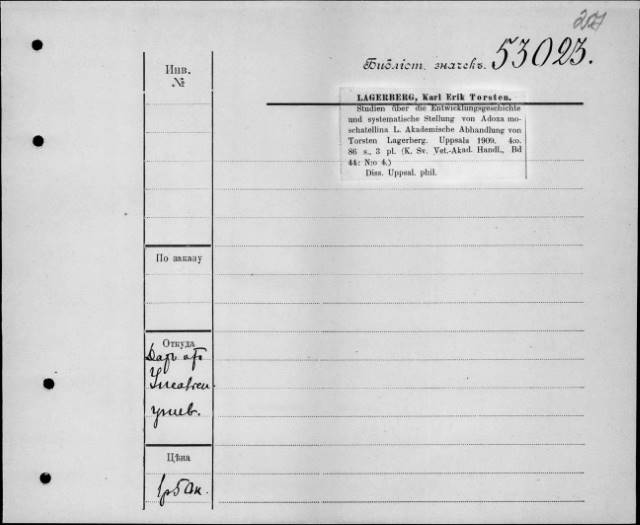 Библіот. значекъ. 53023.
Инв.
№
LAGERBERG, Karl Erik Torsten.
Studien über die Entwicklungsgeschichte
und systematische Stellung von Adoxa mo-
schatellina L. Akademische Abhandlung von
Torsten Lagerberg. Uppsala 1909. 4:o.
86 s., 3 pl. (K. Sv. Vet.-Akad. Handl., Bd
44: N:o 4.)
Diss. Uppsal. phil.
По заказу
Откуда
Даръ отъ
унив.
Цѣна